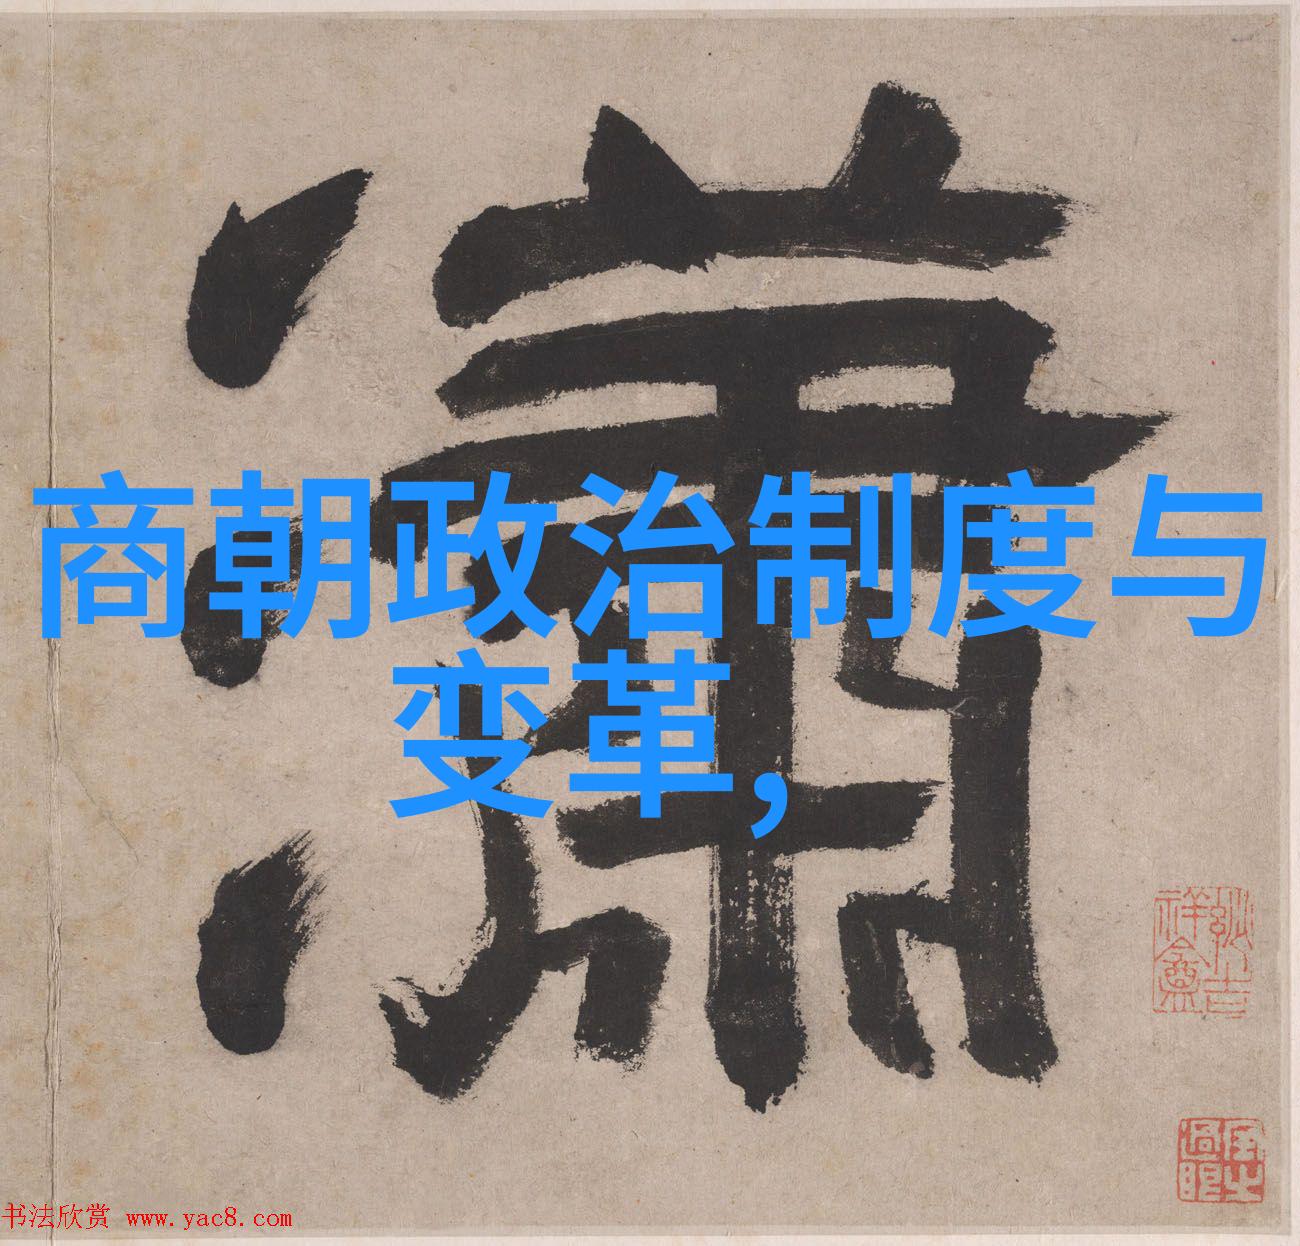 瀟
商朝政治制度与
变革,
书法欣赏 www.yac8.com